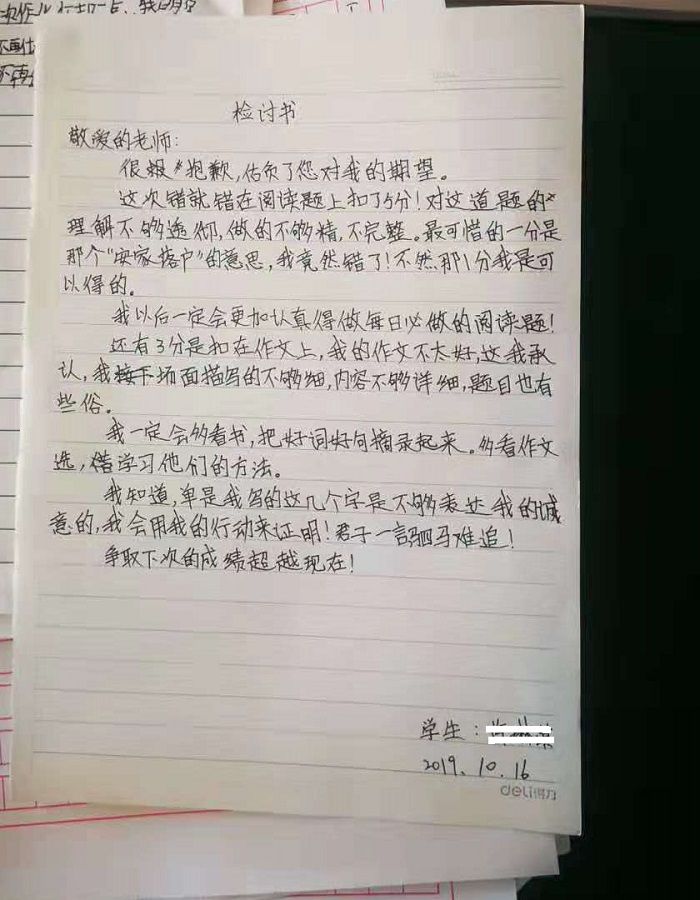 检讨书
敬爱的老师:
很抱歉,估负了您对我的期望。
这次错就错在阅读题上扣了5分!对这道题的
理解不够透彻,做的不够精,不完整。最可惜的一分是
那个"安家落户"的意思,我竟然错了!不然那1分我是可
以得的。
我以后一定会更加认真得做每日必做的阅读题!
还有3分是扣在作文上,我的作文不太好,这我承
认,我场面描写的不够细,内容不够详细,题目也有
些俗。
我一定会多看书,把好词好句摘录起来。多看作文
选,借学习他们的方法。
我知道,单是我写的这几个字是不够表达我的诚
意的,我会用我的行动来证明!君子一言驷马难追!
争取下次的成绩超越现在!
学生:
2019.10.16
deli得力